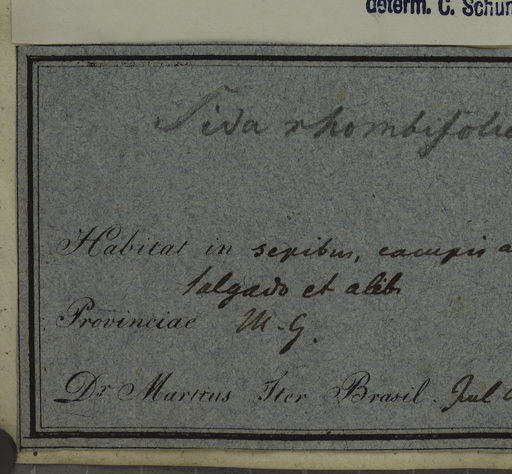 determ. C. Schum
Sida rhombifolia
Habitat in sepibus, campis a
Salgado et alib.
Provinciae M-G.
Dr Martius Iter Brasil. Jul